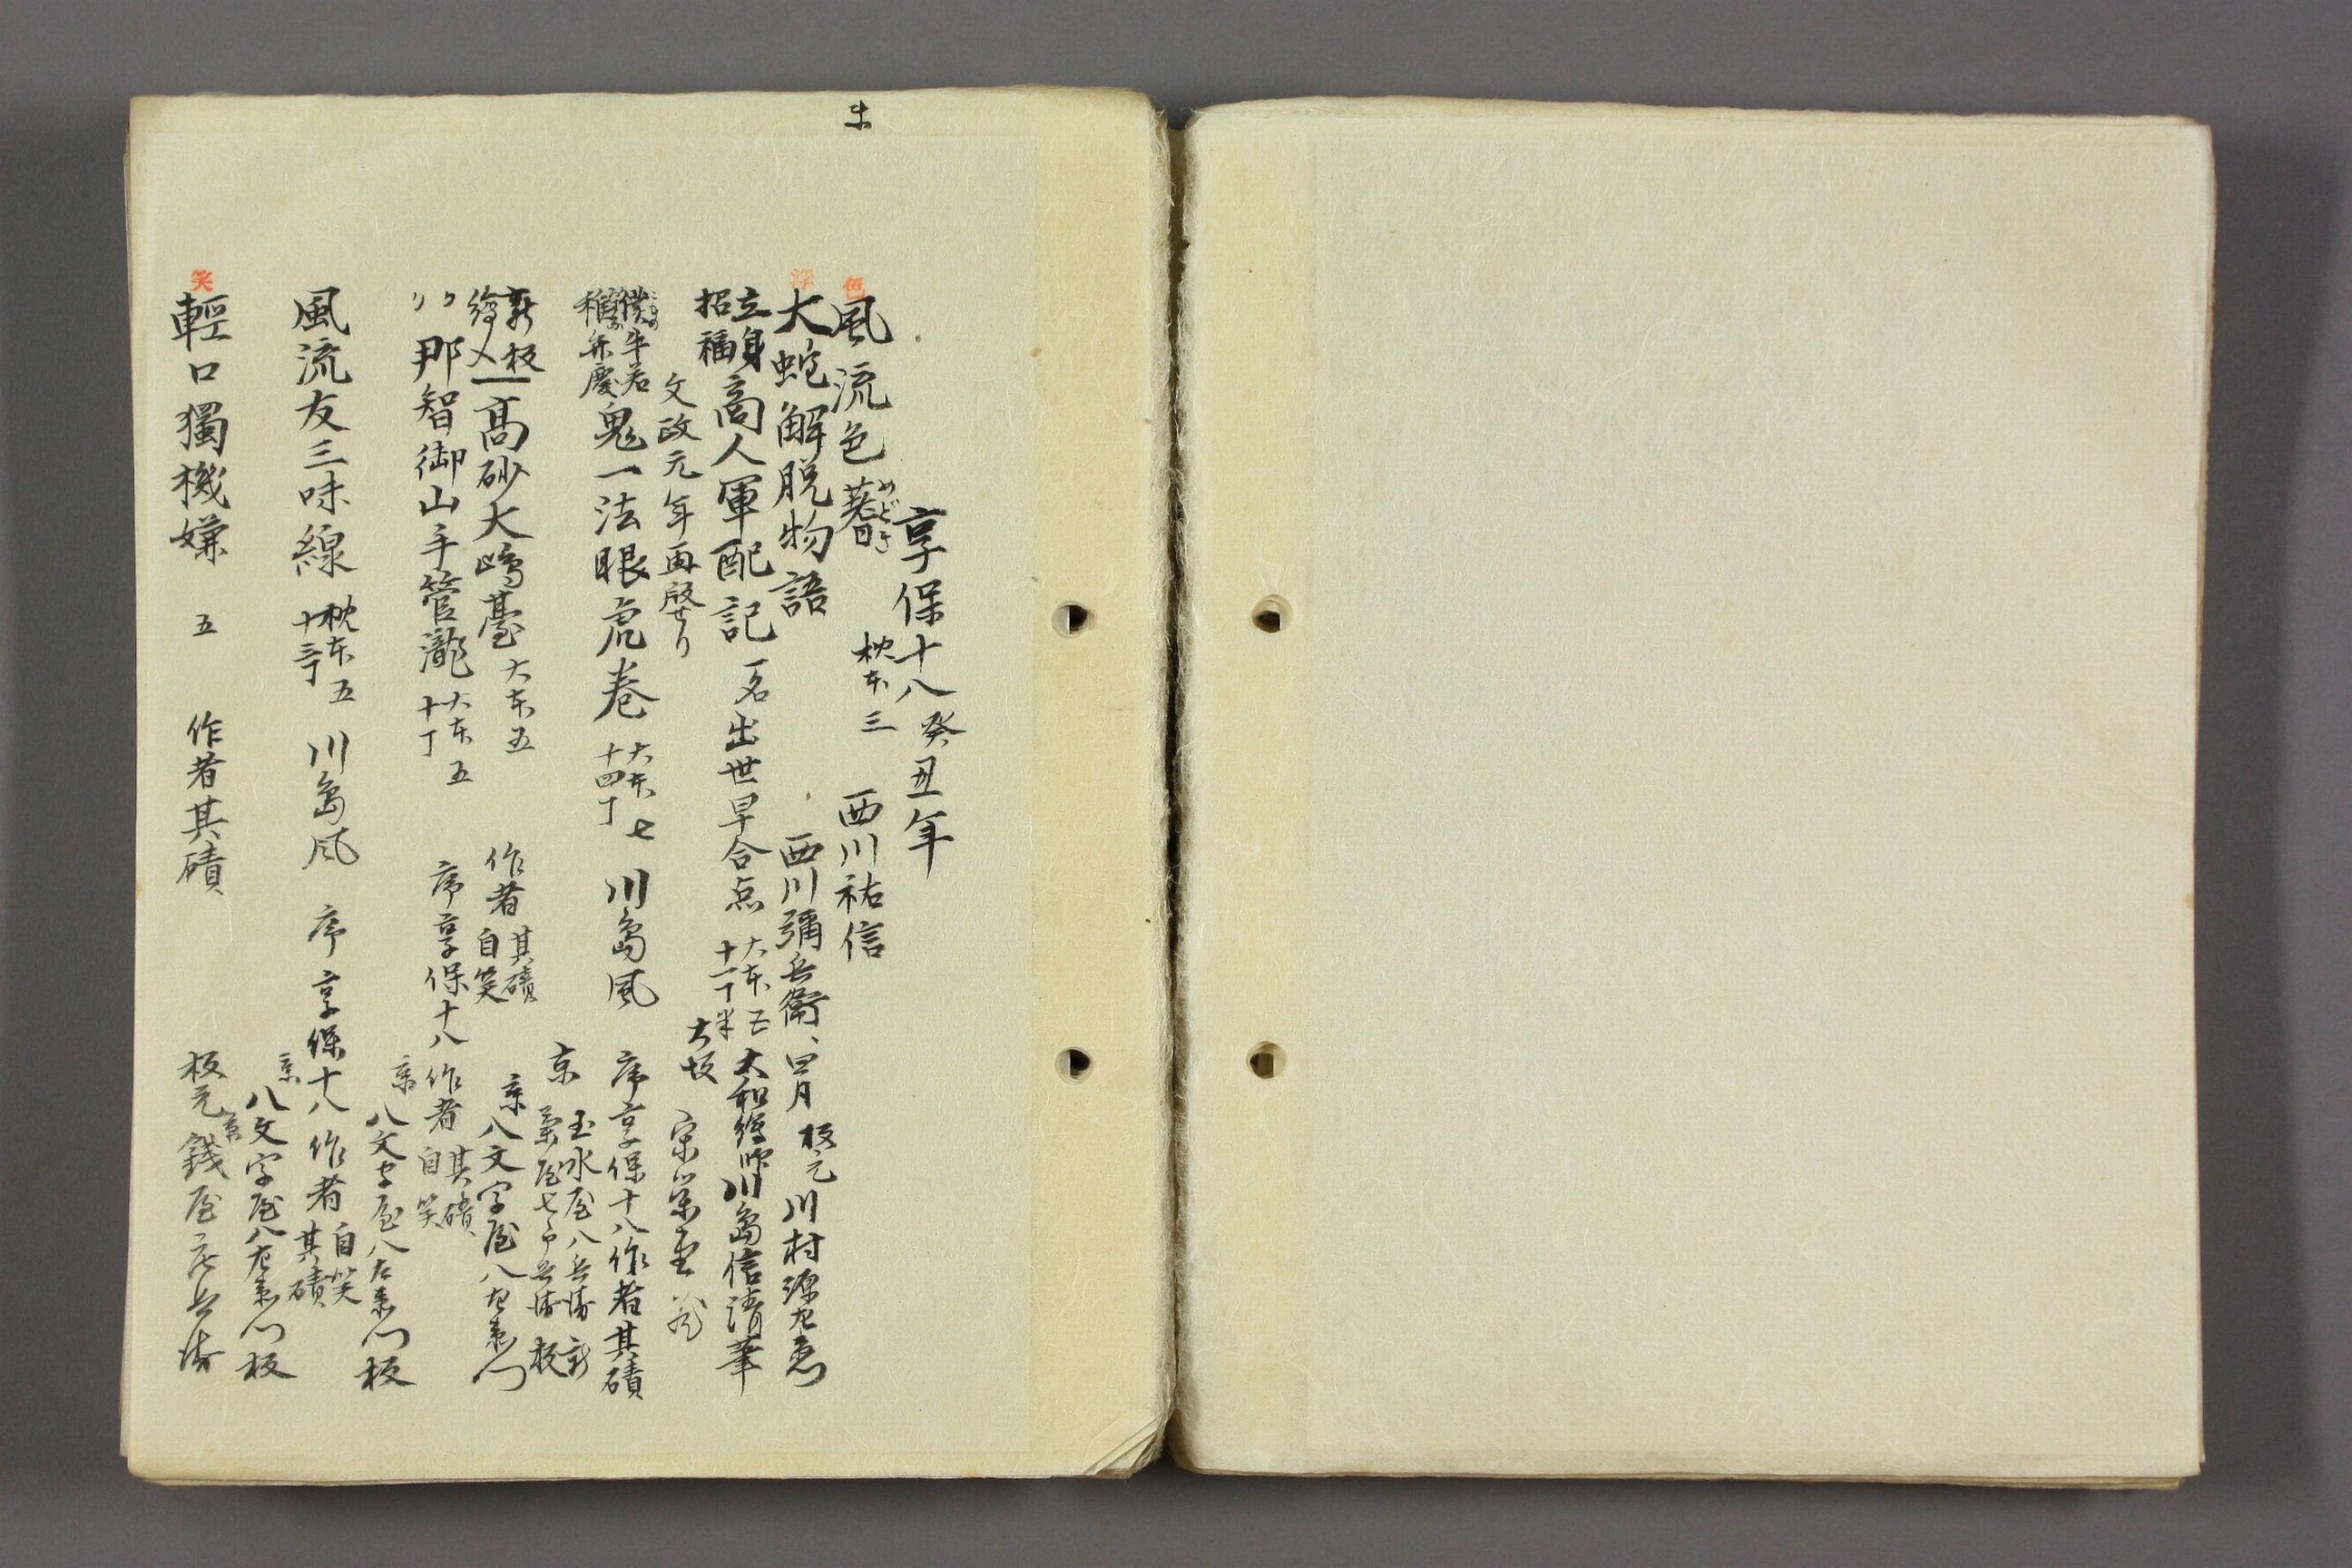 享保十八癸丑年
色
風流色蓍 めどき 枕本三 西川祐信
浮
大蛇解脱物語 西川彌兵衛、四月 板元 川村源左衛門
立身
招福
商人軍配記 一名出世早合点 大本五
十一丁半
大和繪師川島信清筆
文政元年再啓せり 大坂
僕牛若
稚弁慶
鬼一法眼虎巻 大本七
十四丁
川島風 序享保十八作者其磧
京 玉水屋八兵衛 新
菊屋七郎兵衛 板
新板
繪入
一高砂大嶋臺 大本五 作者 其磧
自笑
京八文字屋八左衛門
〃 那智御山手管瀧 大本五
十丁
序享保十八 作者 其磧
自笑
京 八文字屋八左衛門板
風流友三味線 枕本五
十三丁
川島風 序享保十八 作者 自笑
其磧
京 八文字屋八左衛門板
笑
輕口獨機嫌 五 作者其磧 板元 京 錢屋庄兵衛